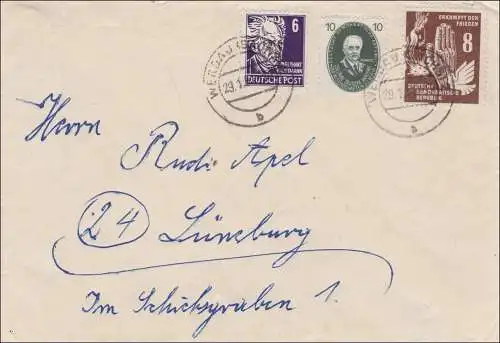 6
GERHART HAUPTMANN
DEUTSCHE POST
10 10
ERKÄMPFT DEN
FRIEDEN
8
DEUTSCHE
DEMOKRATISCHE
REPUBLIK
WERDAU
29.1
b
WERDAU
29.1
a
Herrn
Rudi Apel
24 Lüneburg
Im Schiksgraben 1.